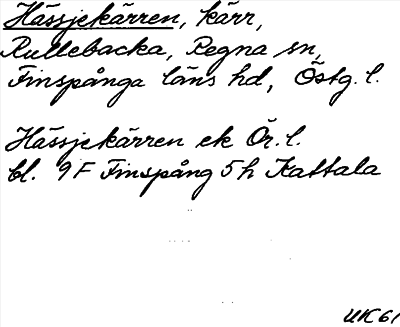 Hässjekärren, kärr,
Rullebacka, Regna sn,
Finspånga läns hd, Östg. l.
Hässjekärren ek Ör. l.
bl. 9 F Finspång 5 h Kattala
UK 61